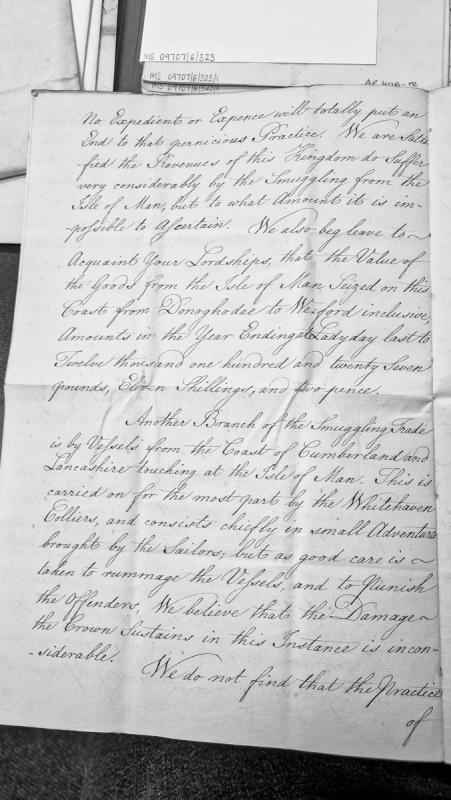 MS 09707/6/323
MS 09707/6/323/1
MS 09707/6/323/1
No Expedient or Expence will totally put an
End to that pernicious Practice. We are Satis
-fied the Revenues of this Kingdom do Suffer
very considerably by the Smuggling from the
Isle of Man, but to what Amount it is im-
-possible to Ascertain. We also beg leave to
Acquaint Your Lordships, that the Value of
the Goods from the Isle of Man Seized on this
Coast from Donoghodee to Wexford inclusive,
Amounts in the Year Ending at Ladyday last to
Twelve thousand one hundred and twenty Seven
pounds, Eleven Shillings, and two pence.
Another Branch of the Smuggling Trade
is by Vessels from the Coast of Cumberland and
Lancashire touching at the Isle of Man. This is
carried on for the most part by the Whitehaven
Colliers, and consists chiefly in small Adventures
brought by the Sailors, but as good care is
taken to rummage the Vessels, and to Punish
the Offenders, We believe that the Damage
the Crown Sustains in this Instance is incon-
-siderable.
We do not find that the Practice
of